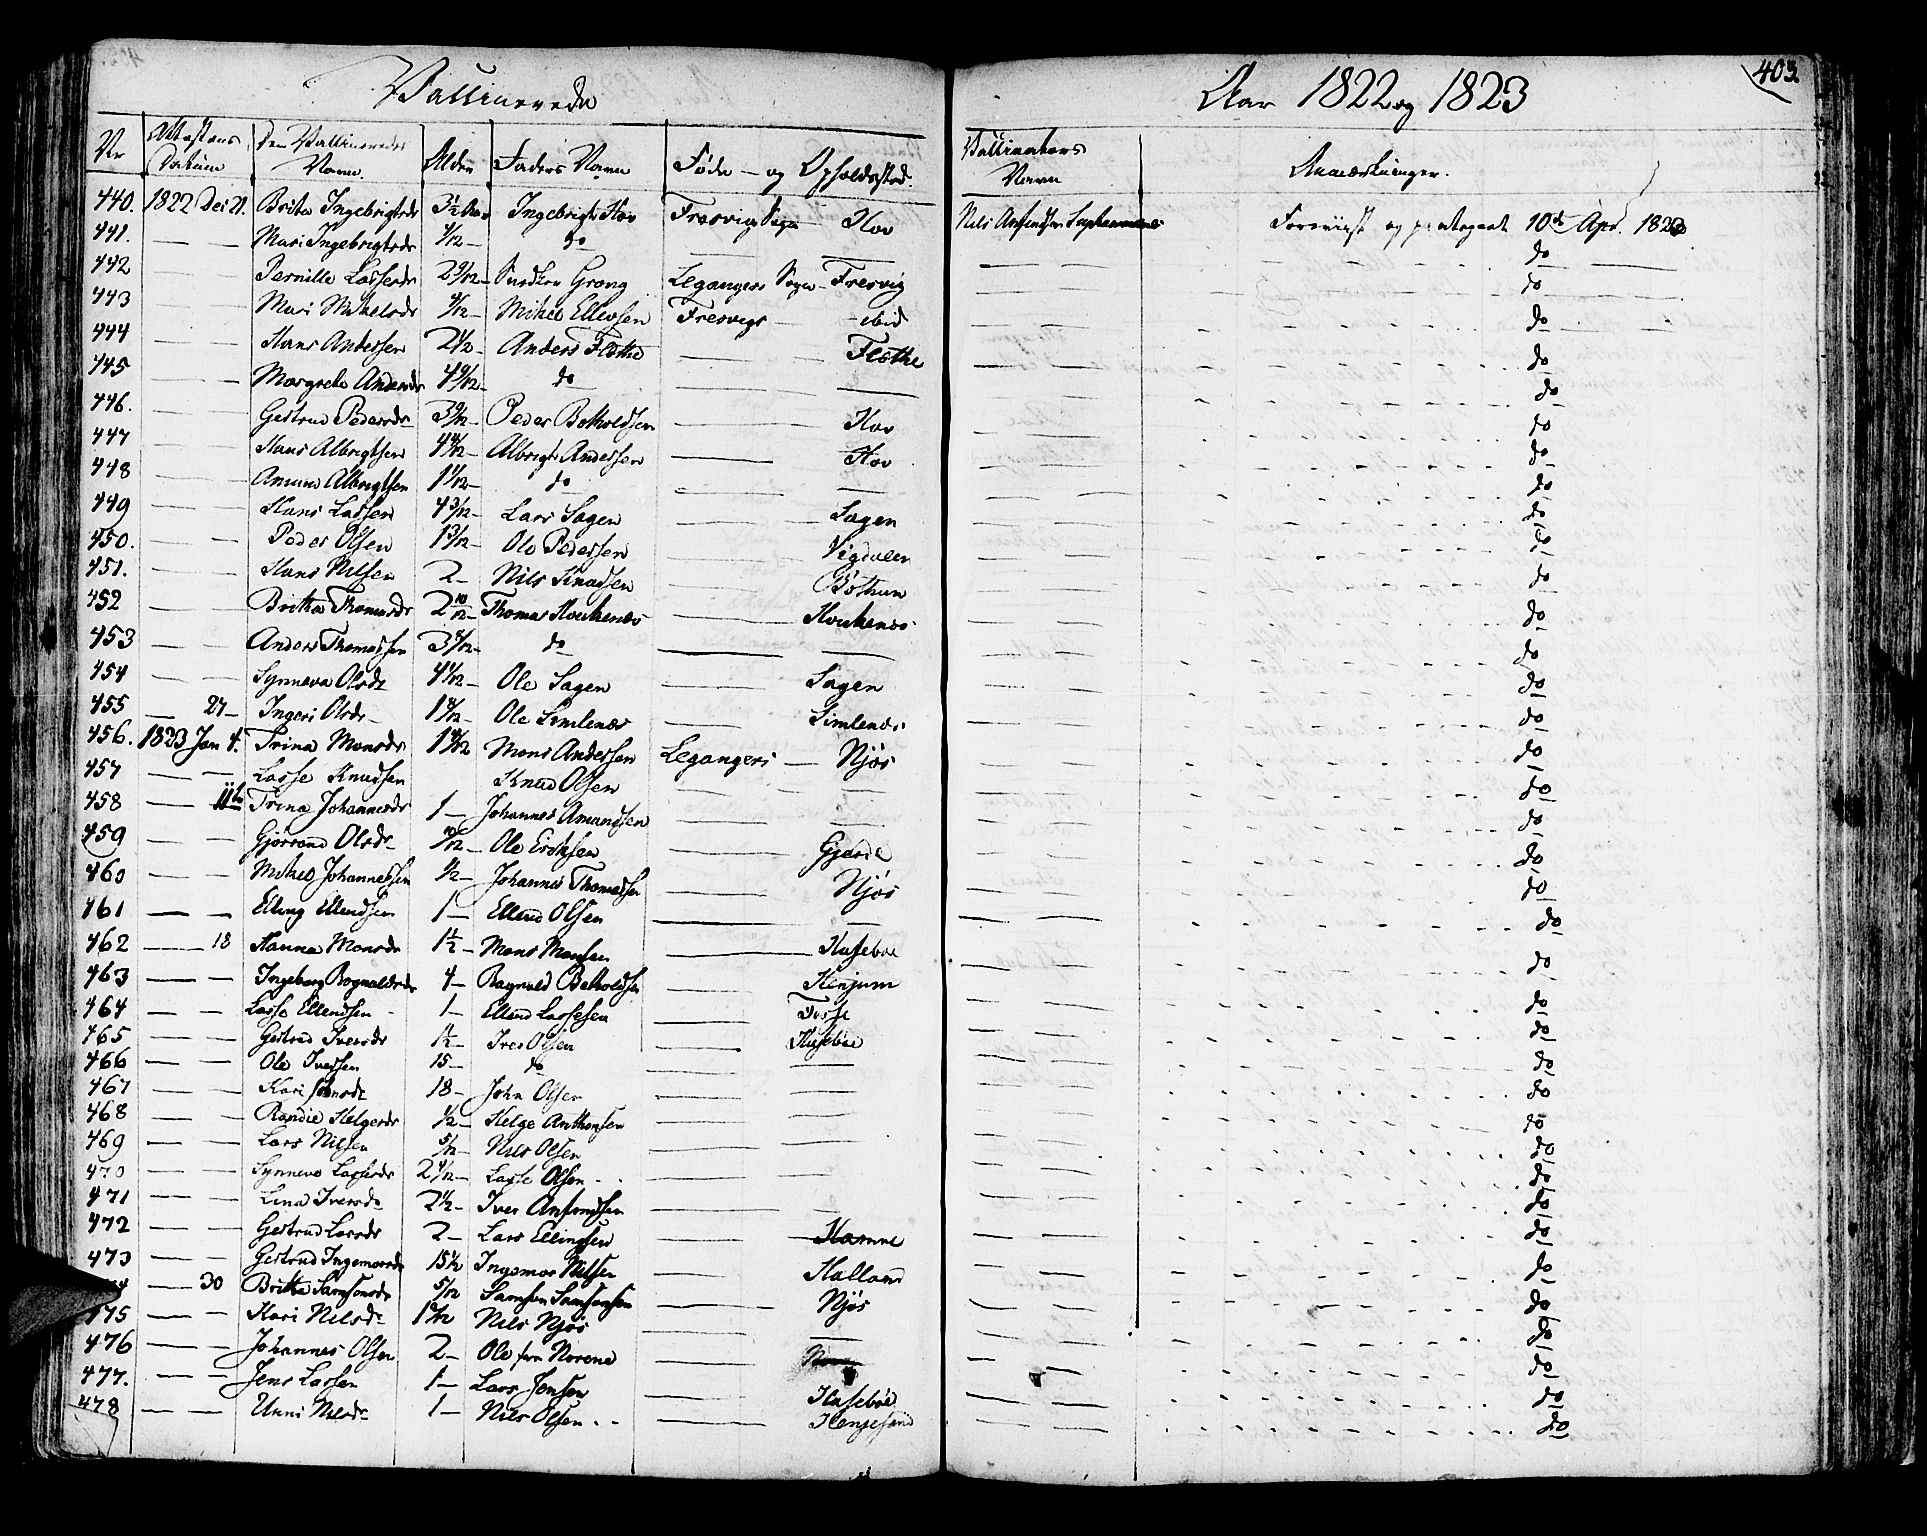 Vaccinerede
Aar 1822 og 1823
403
Nr Attestens Datum Den Vaccineredes Navn. Alder Faders Navn Føde - og Opholdssted. Vaccinators Navn Anmærkninger.
440. 1822 Dec 21. Brita Ingebrigtsdr 3½ Aar Ingebrigt Hov Fresvigs Sogn Hov Nils Foreviist og paategnet 10de Apr. 1823
441. — — Mari Ingebrigtsdr 4/12 — do — do
442 — — Pernille Lassesdr 2 9/12 — Grong Leganger Sogn — Fresvig do
443 — — Mari Mikelsdr 4/12 — Mikel Ellevsen Fresvigs — ibid do
444 — — Hans Andersen 2½ — Anders Fløthe — Fløthe do
445 — — Margrete Andersdr 4 9/12 — do — — do
446. — — Gertrud Pedersdr 3 9/12 — Peder Botholdsen — Hov do
447 — — Hans Albrigtsen 4 4/12 — Albrigt Andersen — Hov do
448 — — Amund Albrigtsen 1 1/12 — do — — do
449 — — Hans Lassen 4 3/12 — Lars Sagen — Sagen do
450. — — Peder Olsen 1 3/12 — Ole Pedersen — Vigdalen do
451. — — Hans Nilsen 2 — Nils Knudsen — Bøthun do
452 — — Britha Thomasdr 2 10/12 — Thomas — do
453 — — Anders Thomassen 3 8/12 — do — — do
454 — — Synneva Olsdr 4 1/12 — Ole Sagen — Sagen do
455 — 27 — Ingeri Olsdr — 1 8/12 — Ole Simlenæs — Simlenæs do
456. 1823 Jan 4. Trina Monsdr 1 4/12 Mons Andersen Legangers — Njøs do
457 — — Lasse Knudsen Knud Olsen — — do
458 — 11te Trina Johannesdr 1 — Johannes Amundsen — — do
459 — — Gjørond Olsdr — 10/12 — Ole Eriksen — Gjerde do
460 — — Mikel Johannessen ½ — Johannes Thomassen — Njøs do
461 — — Elling Ellendsen 1 — Ellend Olsen — — do
462 — 18 Hanna Monsdr 1½ — Mons Monsen — Husebøe do
463 — — Ingeborg Rognaldsdr 4 — Ragnvald Botholdsen — Henjum do
464 — — Lasse Ellendsen — 1 — Ellend Lassesen — do
465 — — Gertrud Iversdr 1½ — Iver Olsen — Husebøe do
466 — — Ole Iversen 15 — do — — do
467 — — Kari Johnsdr 18 — John Olsen — — do
468 — — Randie Helgesdr ½ — Helge Anthonsen — — do
469 — — Lars Nilsen 5/12 — Nils Olsen — — do
470 — — Synneva Lassesdr 2 4/12 — Lasse Olsen — — do
471 — — Lina Iversdr 2½ — Iver — — do
472 — — Gertrud Larsdr 2 — Lars Ellingsen — Hamre do
473 — — Gertrud Ingemarsdr 15½ Ingemar Nilsen — Halland do
— 30 Britha Samsonsdr 5/12 Samson Samsonsen — Njøs do
475 — — Kari Nilsdr 1 9/12 Nils Njøs — — do
476 — — Johannes Olsen 2 — Ole fra Norene — do
477. — — Jens Larsen 1 — Lars Jensen — Husebøe do
478 — — Unni Nilsdr 1 — Nils Olsen — do